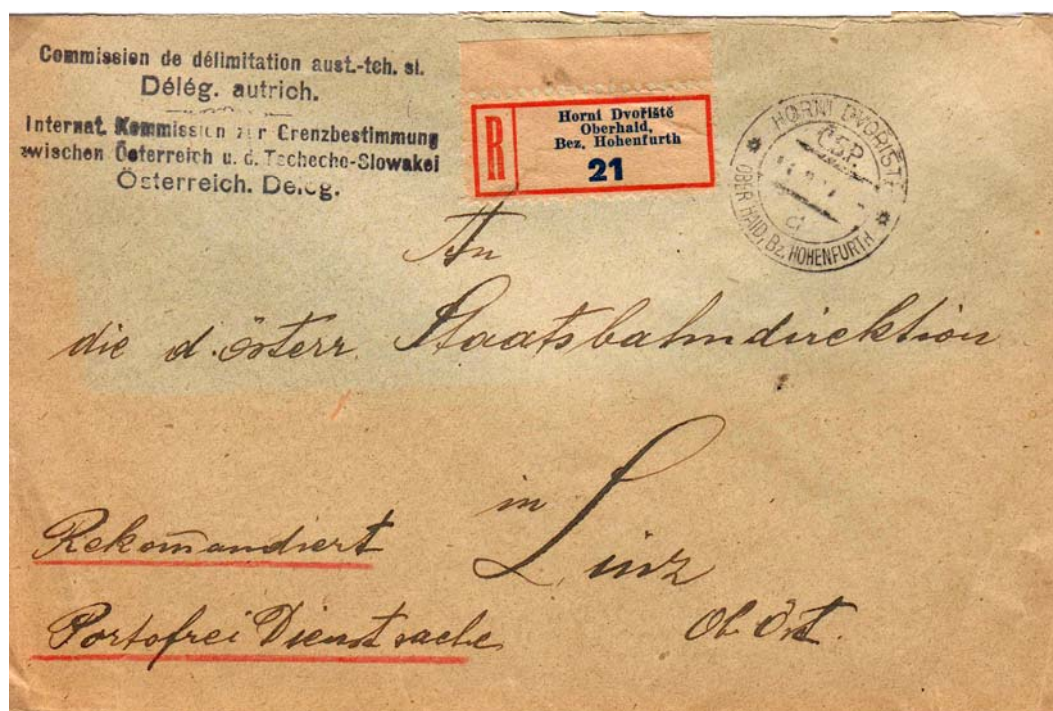 Commission de délimitation aust.-tch. sl.
Délég. autrich.
Internat. Kommission zur Grenzbestimmung
zwischen Österreich u. d. Tschecho-Slowakei
Österreich. Deleg.
R
Horni Dvořiště
Oberhaid,
Bez. Hohenfurth
21
HORNI DVOŘIŠTĚ
Č.S.P.
OBERHAID, Bz. HOHENFURTH
An
die d. österr. Staatsbahndirektion
in
Linz
Ob. Öst.
Rekomandiert
Portofrei Dienstsache